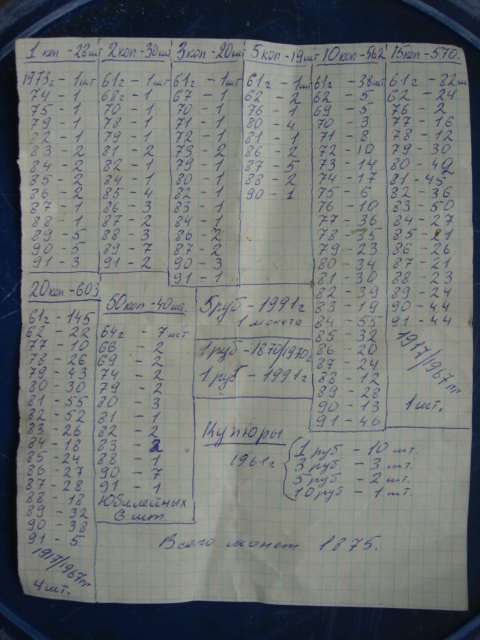 1 коп - 28 шт
1973г - 1шт
74 - 1
75 - 1
79 - 1
82 - 1
83 - 2
84 - 2
85 - 2
86 - 2
87 - 1
88 - 1
89 - 5
90 - 5
91 - 3
2 коп - 30 шт
61г - 1шт
68г - 1
70 - 1
78 - 1
79 - 1
81 - 2
82 - 1
84 - 1
85 - 4
86 - 3
87 - 2
88 - 3
89 - 7
91 - 2
3 коп - 20 шт
61г - 1шт
67 - 1
70 - 1
71 - 1
72 - 1
73 - 2
79 - 1
80 - 1
82 - 1
83 - 1
84 - 1
86 - 2
87 - 2
90 - 3
91 - 1
5 коп - 19 шт
61г - 1шт
62 - 2
76 - 1
80 - 4
81 - 1
86 - 2
87 - 5
88 - 2
90 - 1
10 коп - 562
61г - 38шт
62 - 5
69 - 5
70 - 3
71 - 8
72 - 10
73 - 14
74 - 17
75 - 6
76 - 10
77 - 36
78 - 35
79 - 23
80 - 34
81 - 30
82 - 39
83 - 19
84 - 55
85 - 32
86 - 20
87 - 24
88 - 12
89 - 28
90 - 13
91 - 46
15 коп - 570.
61г - 82шт
62 - 24
76 - 2
77 - 16
78 - 12
79 - 30
80 - 40
81 - 45
82 - 36
83 - 50
84 - 27
85 - 21
86 - 26
87 - 21
88 - 23
89 - 24
90 - 44
91 - 44
1917/1967гг
1 шт.
20 коп - 603
61г - 145
62 - 22
77 - 10
78 - 26
79 - 43
80 - 30
81 - 55
82 - 52
83 - 26
84 - 18
85 - 24
86 - 27
87 - 28
88 - 18
89 - 32
90 - 38
91 - 5
1917/1967гг
4 шт.
50 коп - 40 шт.
64г - 7 шт
66 - 2
69 - 2
74 - 2
79 - 2
80 - 3
81 - 1
82 - 2
83 - 2
88 - 1
90 - 7
91 - 1
Юбилейных
6 шт.
5 руб - 1991г
1 монета
1 руб - 1870/1970г.
1 руб - 1991г
Купюры
1961г
1 руб - 10 шт.
3 руб - 3 шт.
5 руб - 2 шт.
10 руб - 1 шт.
Всего монет 1875.